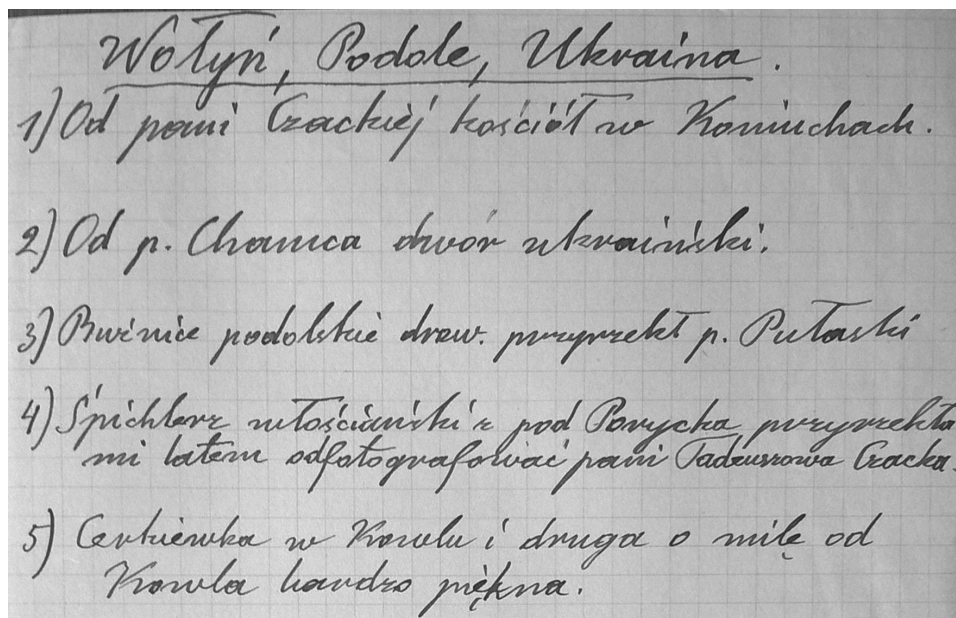 Wołyń, Podole, Ukraina.
1) Od pani Czackiej kościół w Koniuchach.
2) Od p. Chamca dwór ukraiński.
3) Bużnice podolskie drew. przyrzekł p. Pułaski
4) Śpichlerz włościański z pod Porycka przyrzekła
mi latem odfotografować pani Tadeuszowa Czacka.
5) Cerkiewka w Kowlu i druga o milę od
Kowla bardzo piękna.